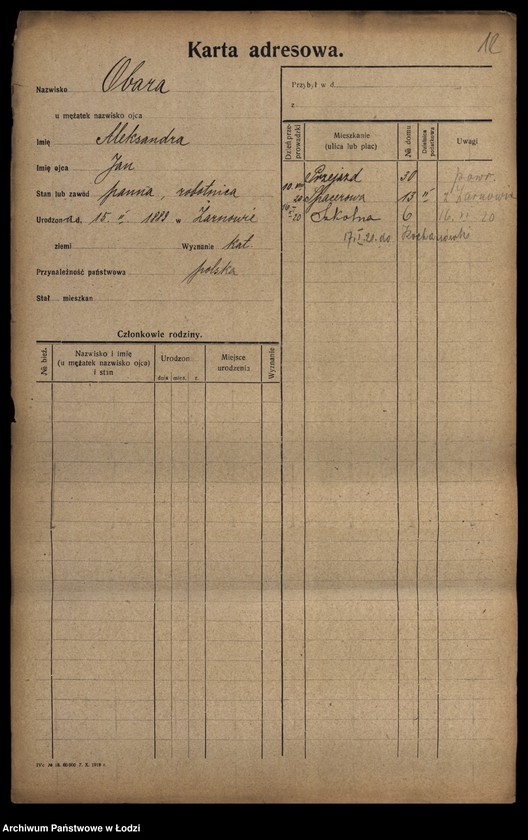 12
Karta adresowa.
Nazwisko Obara
u mężatek nazwisko ojca
Imię Aleksandra
Imię ojca Jan
Stan lub zawód panna, robotnica
Urodzon a d. 15. V. 1888 w Żarnowie
ziemi Wyznanie kat.
Przynależność państwowa polska
Stał. mieszkan.
Przybył w d.
z
Dzień przeprowadzki
Mieszkanie (ulica lub plac)
№ domu
Dzielnica państwowa
Uwagi
Przejazd 30
Spacerowa 15 z Żarnowa
Szkolna 6 16. 20
do Kochanówki
Członkowie rodziny.
№ bież.
Nazwisko i imię
(u mężatek nazwisko ojca)
i stan
Urodzon.
dnia mies. r.
Miejsce
urodzenia
Wyznanie
7. X. 1919 r.
Archiwum Państwowe w Łodzi